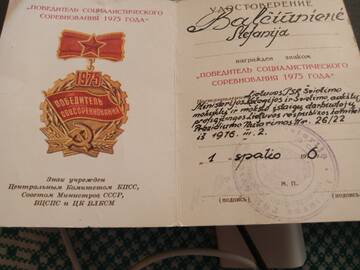 "ПОБЕДИТЕЛЬ СОЦИАЛИСТИЧЕСКОГО
СОРЕВНОВАНИЯ 1975 ГОДА"
1975
ПОБЕДИТЕЛЬ
СОЦСОРЕВНОВАНИЯ
Знак учрежден
Центральным Комитетом КПСС,
Советом Министров СССР,
ВЦСПС и ЦК ВЛКСМ
УДОСТОВЕРЕНИЕ
Balčiūnienė
Stefanija
награжден знаком
"ПОБЕДИТЕЛЬ СОЦИАЛИСТИЧЕСКОГО
СОРЕВНОВАНИЯ 1975 ГОДА"
Lietuvos TSR Švietimo
Ministerijos Kolegijos ir Švietimo, aukštų
mokyklų ir mokslo įstaigų darbuotojų
profsąjungos Lietuvos respublikos komiteto
Prezidiumo Nutarimas Nr. 26/22
iš 1976. III. 2.
1 spalio 6
М. П.
(подпись)
(подпись)